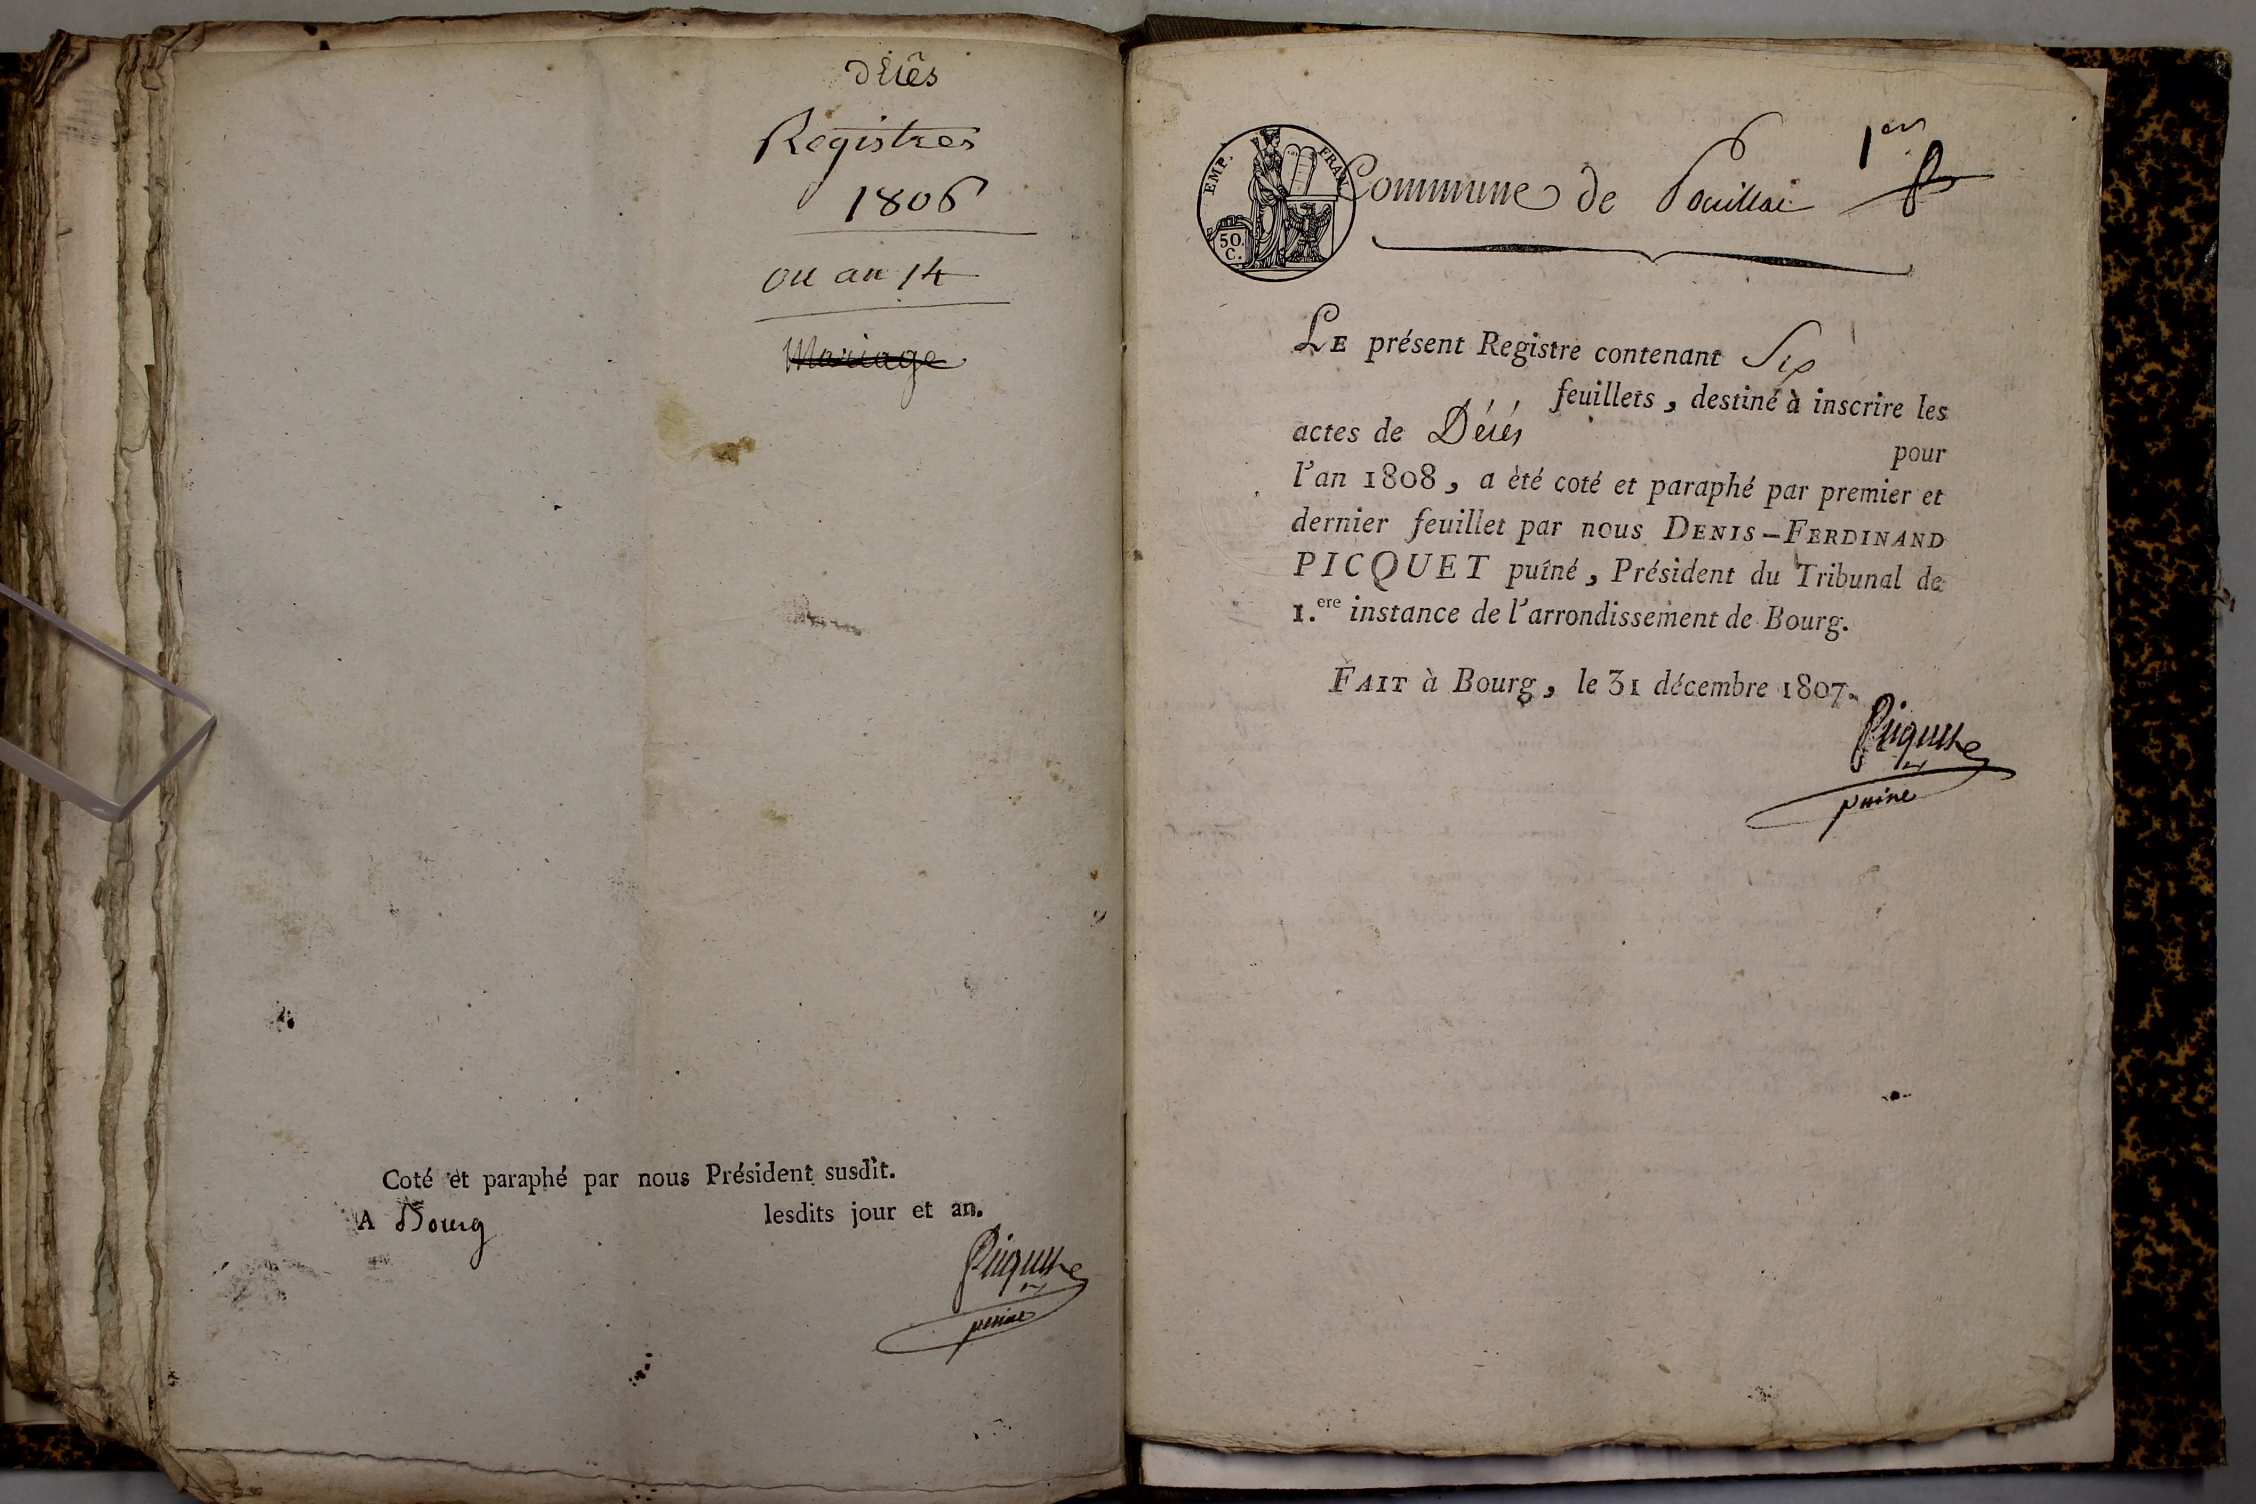 Décés
Registres
1806
ou an 14
Mariage
Coté et paraphé par nous Président susdit.
A Bourg lesdits jour et an.
Picquet
puiné
1er
EMP. FRAN.
50. C.
Commune de Pouillai
LE présent Registre contenant Six
feuillets, destiné à inscrire les
actes de Décés
pour
l'an 1808, a été coté et paraphé par premier et
dernier feuillet par nous DENIS-FERDINAND
PICQUET puîné, Président du Tribunal de
1.ere instance de l'arrondissement de Bourg.
FAIT à Bourg, le 31 décembre 1807.
Picquet
puiné